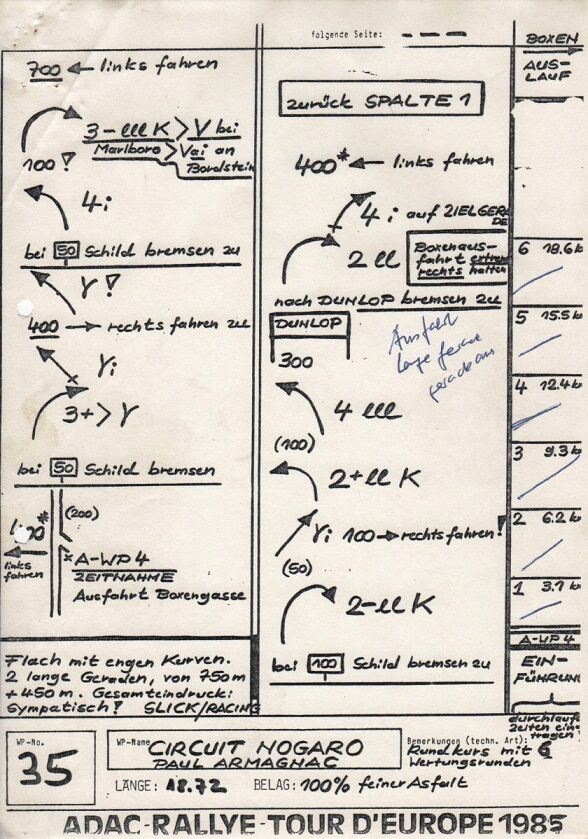 folgende Seite:
700 ← links fahren
3-lllK > V bei
Marlboro > Vai an
Bordstein
100!
4i
bei 50 Schild bremsen zu
Y!
400 → rechts fahren zu
Yi
3+>Y
bei 50 Schild bremsen
(200)
links
fahren
A-WP 4
ZEITNAHME
Ausfahrt Boxengasse
Flach mit engen Kurven.
2 lange Geraden, von 750m
+ 450m. Gesamteindruck:
Sympatisch! SLICK/RACING
zurück SPALTE 1
400* ← links fahren
4 i auf ZIELGERA
DE
2 ll
Boxenaus-
fahrt extrem
rechts halten
nach DUNLOP bremsen zu
DUNLOP
300
Ausfahrt
lange
geradeaus
4 lll
(100)
2+ll K
Yi 100 → rechts fahren!
(50)
2-ll K
bei 100 Schild bremsen zu
BOXEN
AUS-
LAUF
6 18.6 k
5 15.5 k
4 12.4 k
3 9.3 k
2 6.2 k
1 3.1 k
A-WP 4
EIN-
FÜHRUN
durchlauf
zeiten ein-
tragen
WP-No.
35
WP-Name
CIRCUIT NOGARO
PAUL ARMAGNAC
Bemerkungen (techn. Art):
Rundkurs mit 6
Wertungsrunden
LÄNGE: 18.72 BELAG: 100% feiner Asfalt
ADAC-RALLYE-TOUR D'EUROPE 1985